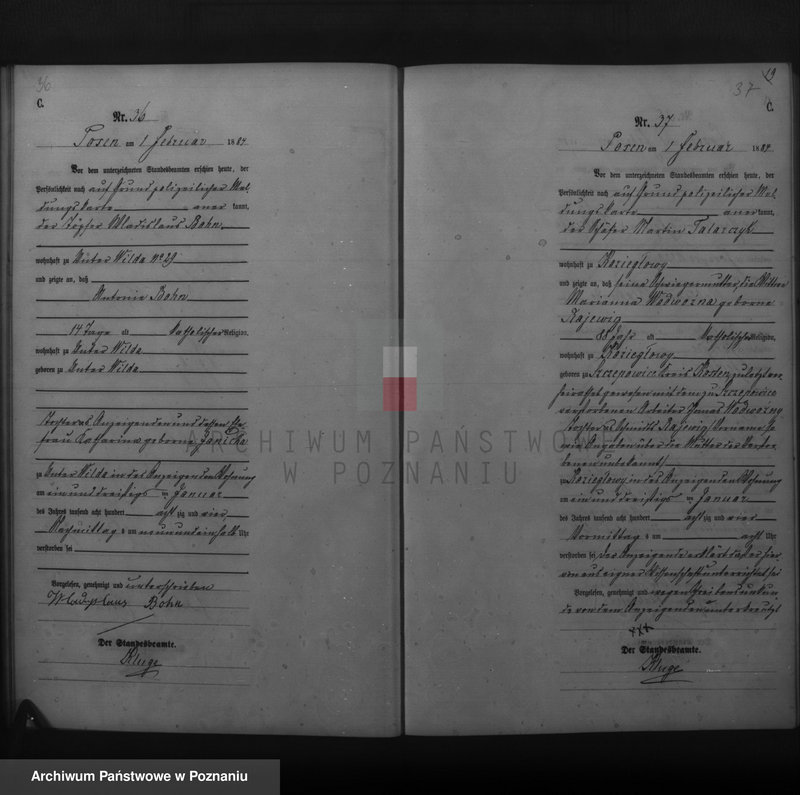 36
C.
Nr. 36
Posen am 1 Februar 1884
Vor dem unterzeichneten Standesbeamten erschien heute, der
Persönlichkeit nach auf Grund polizeilicher Mel-
dungskarte anerkannt,
der Töpfer Wladislaus Bohn
wohnhaft zu Unter Wilda No 29
und zeigte an, daß
Antonie Bohn
14 Tage alt katholischer Religion,
wohnhaft zu Unter Wilda
geboren zu Unter Wilda
Tochter des Anzeigenden und dessen Ehe-
frau Katharina geborne Janicka
zu Unter Wilda in des Anzeigenden Wohnung
am einunddreißigsten Januar
des Jahres tausend acht hundert achtzig und vier
Nachmittag s um neun und einhalb Uhr
verstorben sei
Vorgelesen, genehmigt und unterschrieben
Wladyslaus Bohn
Der Standesbeamte.
Kluge
19
37
C.
Nr. 37
Posen am 1 Februar 1884
Vor dem unterzeichneten Standesbeamten erschien heute, der
Persönlichkeit nach auf Grund polizeilicher Mel-
dungskarte anerkannt,
der Schäfer Martin Talarczyk
wohnhaft zu Koziegłowy
und zeigte an, daß seine Schwiegermutter, die Wittwe
Marianna Wodwozna geborne
Rajewig
88 Jahr alt katholischer Religion,
wohnhaft zu Koziegłowy
geboren zu Szczepowice Kreis Kosten zuletzt ver-
heirathet gewesen mit dem zu Szczepowice
verstorbenen Arbeiter Wodwozny
Tochter des Schmidts Rajewig
Angaben über die Mutter der Verstor-
benen unbekannt
zu Koziegłowy in des Anzeigenden Wohnung
am einunddreißigsten Januar
des Jahres tausend acht hundert achtzig und vier
Vormittag s um acht Uhr
verstorben sei, der Anzeigende erklärt daß er hier-
von aus eigner Wissenschaft unterrichtet sei
Vorgelesen, genehmigt und wegen Schreibensunkun-
de von dem Anzeigenden unterkreuzt
xxx
Der Standesbeamte.
Kluge
ARCHIWUM PAŃSTWOWE
W POZNANIU
Archiwum Państwowe w Poznaniu